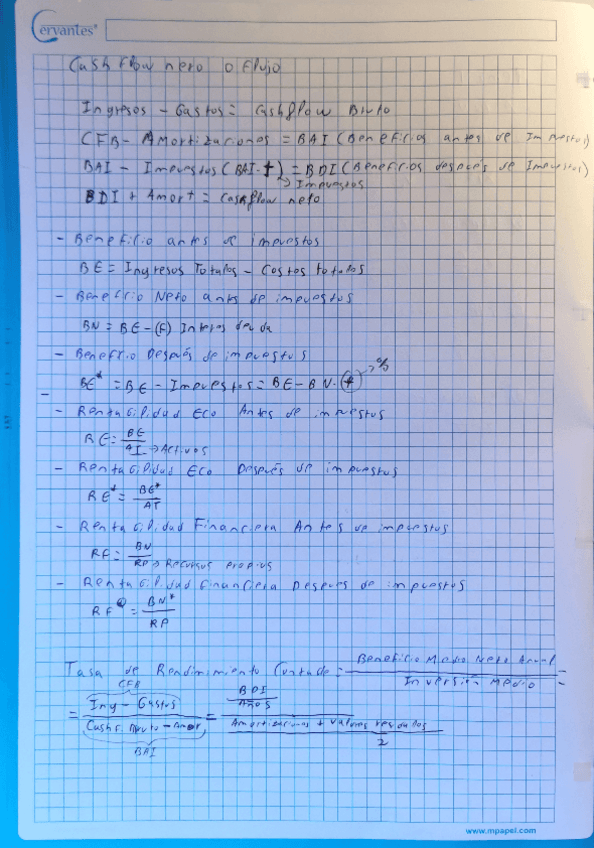 Cervantes
Cash flow neto o flujo
Ingresos - Gastos = Cashflow Bruto
CFB - Amortizaciones = BAI (Beneficios antes de Impuestos)
BAI - Impuestos (BAI · t) = BDI (Beneficios después de Impuestos)
↳ Impuestos
BDI + Amort = Cashflow neto
- Beneficio antes de impuestos
BE = Ingresos Totales - Costos totales
- Beneficio Neto antes de impuestos
BN = BE - (F) Interes deuda
- Beneficio Después de impuestos
BE* = BE - Impuestos = BE - BN · t → %
- Rentabilidad Eco Antes de impuestos
RE = BE / AT → Activos
- Rentabilidad Eco Después de impuestos
RE* = BE* / AT
- Rentabilidad Financiera Antes de impuestos
RF = BN / RP → Recursos propios
- Rentabilidad financiera Despues de impuestos
RF* = BN* / RP
Tasa de Rendimimiento Contable = Beneficio Medio Neto Anual / Inversión Medio =
CFB
= Ing - Gastos / Cash f. Bruto - Amor = BDI / Años / Amortizaciones + valores residuales / 2
BAI
www.mpapel.com